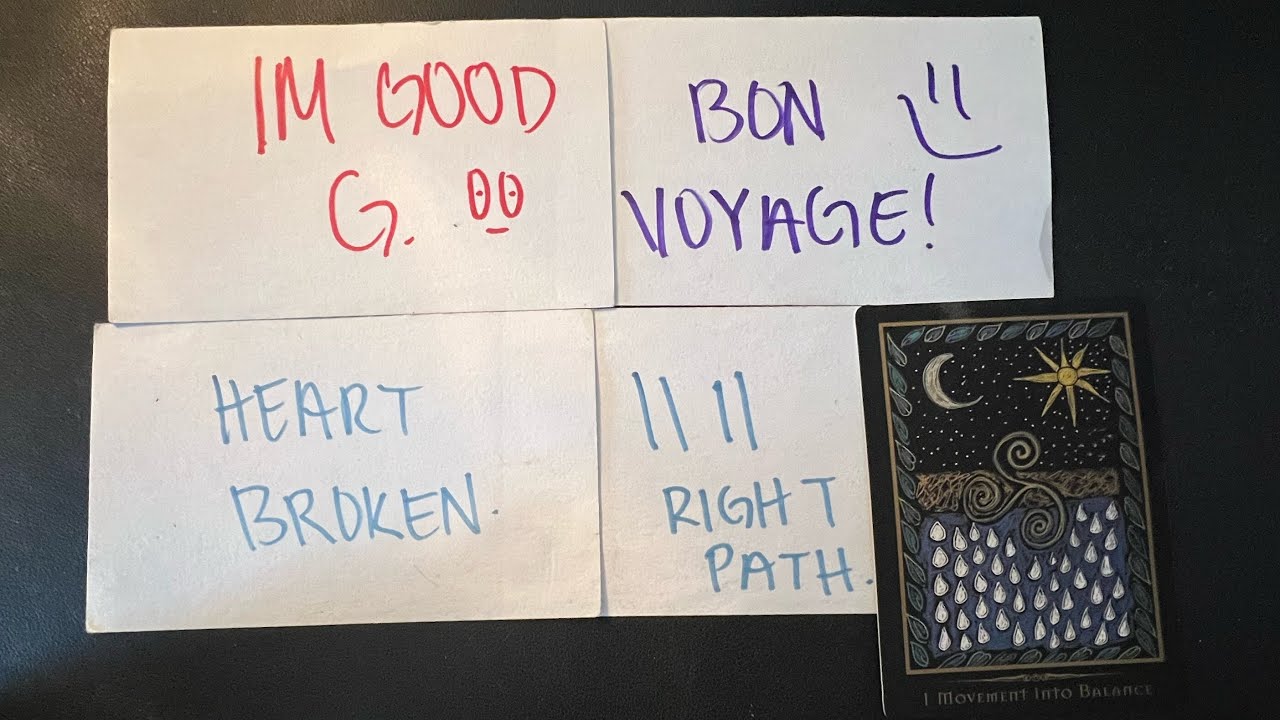 IM GOOD
G.
BON
VOYAGE!
HEART
BROKEN.
11 11
RIGHT
PATH.
1 MOVEMENT INTO BALANCE